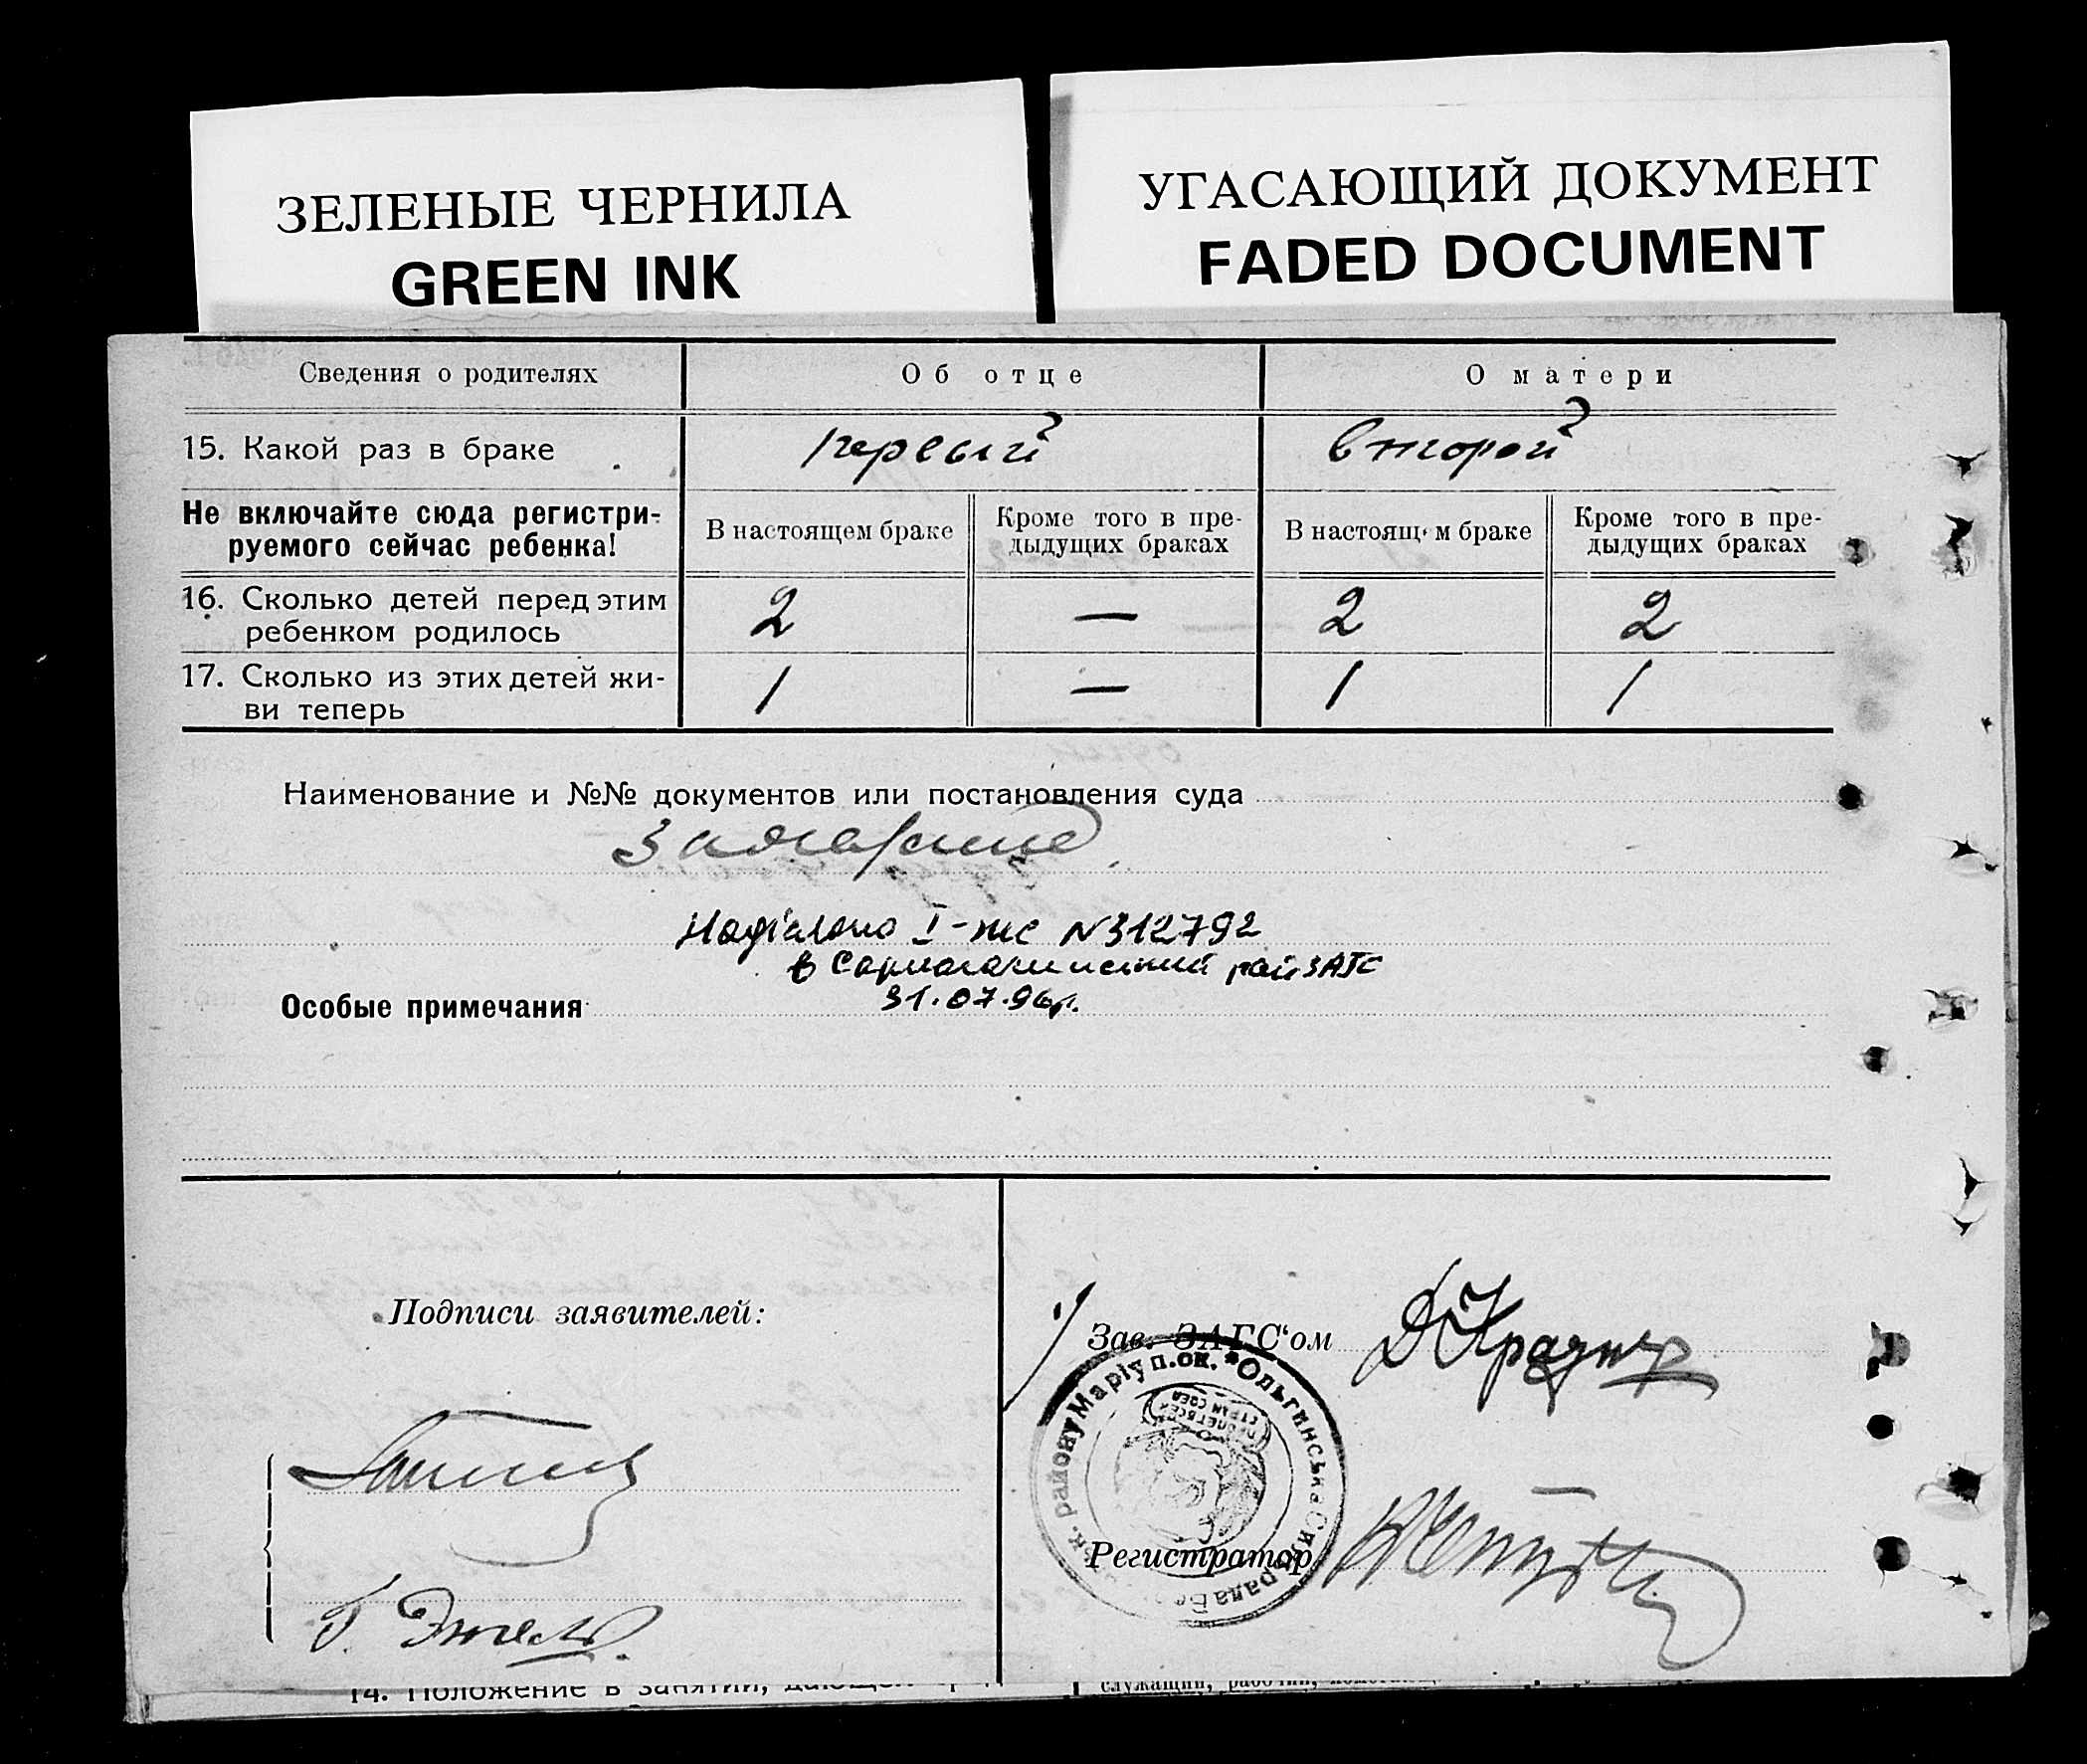 ЗЕЛЕНЫЕ ЧЕРНИЛА
GREEN INK
УГАСАЮЩИЙ ДОКУМЕНТ
FADED DOCUMENT
Сведения о родителях Об отце О матери
15. Какой раз в браке первый второй
Не включайте сюда регистри-
руемого сейчас ребенка!
В настоящем браке
Кроме того в пре-
дыдущих браках
В настоящ м браке
Кроме того в пре-
дыдущих браках
16. Сколько детей перед этим
ребенком родилось 2 — 2 2
17. Сколько из этих детей жи-
ви теперь 1 — 1 1
Наименование и №№ документов или постановления суда
Надіслано I-не N312792
в рай ЗАГС
31.07.96р.
Особые примечания
Подписи заявителей:
Зав. ЗАГС'ом
Маріуп. ок. * Ольгинська Сильрада
району
Регистратор
14. Положение в занятии, дающем
служащий, рабочий,